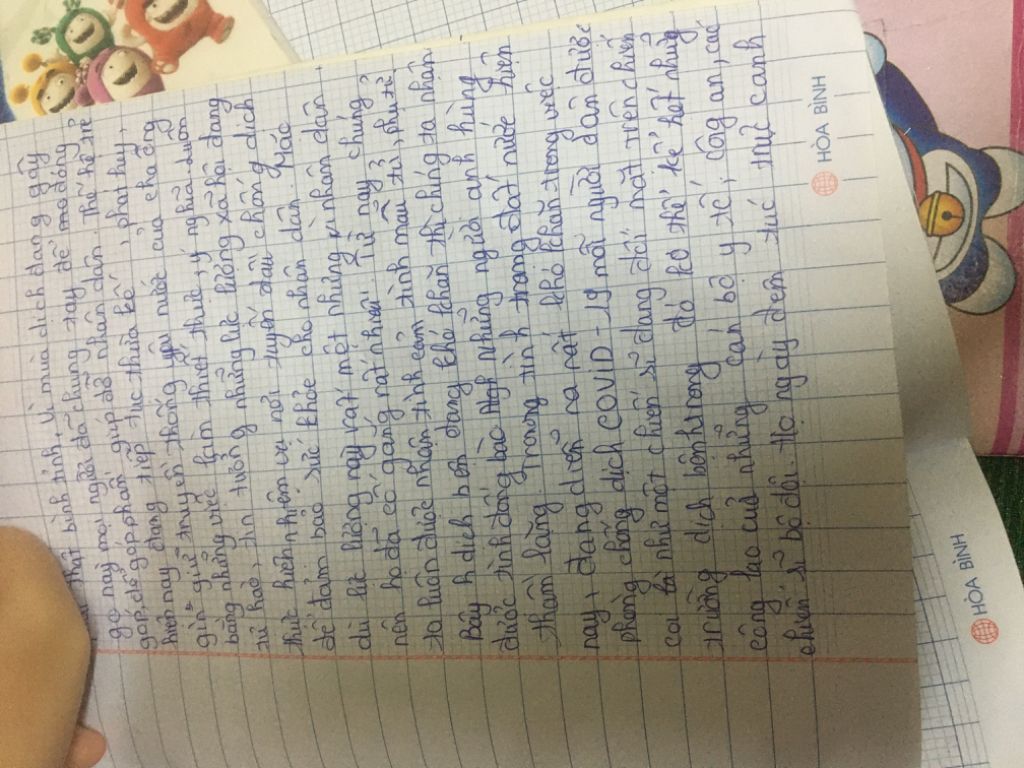 thật bình tĩnh. Vì mùa dịch đang gây
go này mọi người đã chung tay để mà đóng
góp, để góp phần giúp đỡ nhân dân. Thế hệ trẻ
hôm nay đang tiếp tục thừa kế, phát huy,
gìn giữ truyền thống yêu nước của cha ông
bằng những việc làm thiết thực, ý nghĩa. Luôn
tự hào, tin tưởng những lực lượng xã hội đang
thực hiện nhiệm vụ nơi tuyến đầu chống dịch
để đảm bảo sức khỏe cho nhân dân. Mặc
dù lực lượng này rất mệt nhưng vì nhân dân
nên họ đã cố gắng rất nhiều. Từ nay chúng
ta luôn được nhận tình cảm, tình mẫu tử, phụ tử,
Bây h dịch bện đang khó khăn thì chúng ta nhận
được tình đồng bào. Hah những người anh hùng
thầm lặng. Trong tình trang đất nước hiện
nay, đang diễn ra rất khó khăn trong việc
phòng chống dịch COVID-19 mỗi người dân được
coi là như một chiến sĩ đang đối mặt trên chiến
trường dịch bệnh. trong đó ko thể kể hết những
công lao của những cán bộ y tế, công an, các
chiến sĩ bộ đội. Họ ngày đêm túc trực canh
HÒA BÌNH
HÒA BÌNH